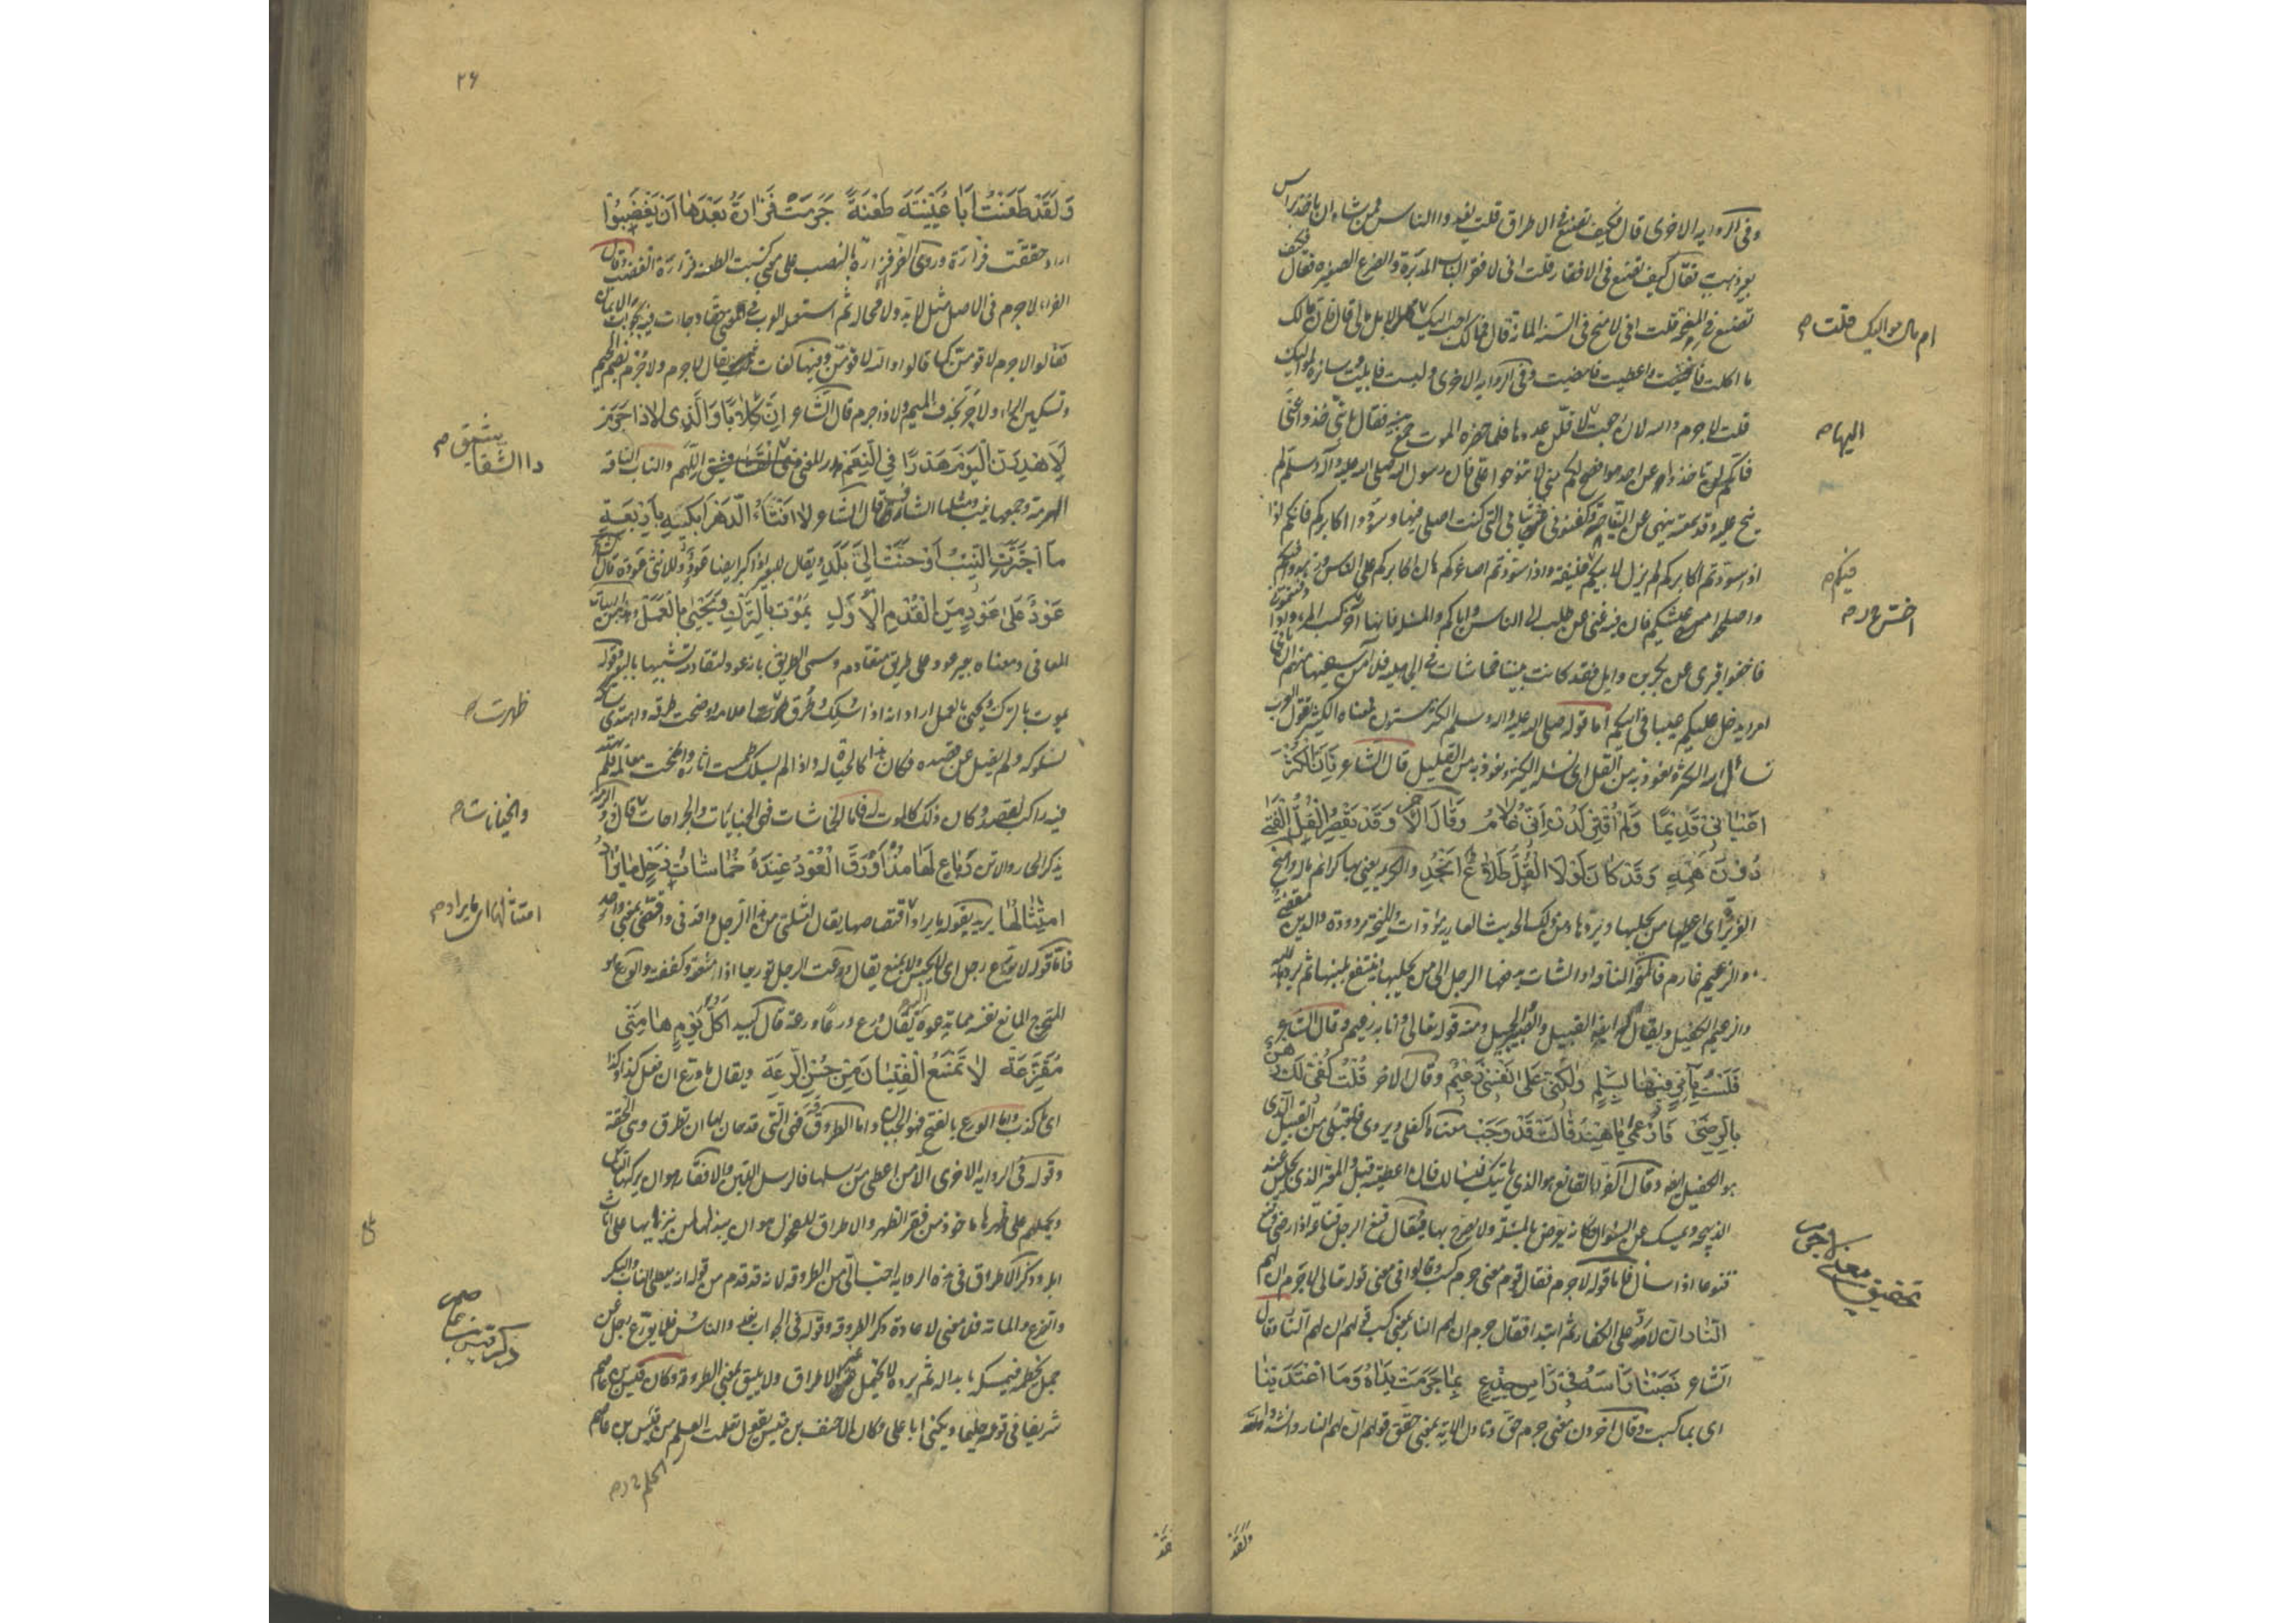 وفى الرواية الاخرى قال فكيف تصنع فى الاطراق قلت يغدوا الناس فمن شاء ان ياخذ براس
بعير ذهب به فقال كيف تصنع فى الافقار قلت انى لافقر الناب المدبرة والضرع الصغيرة فقال فكيف
تصنع فى المنيحة قلت انى لامنح فى السنة المائة قال فمالك احب اليك ام مال مواليك قلت لا بل مالى قال فان مالك
ما اكلت فافنيت واعطيت فامضيت وفى الرواية الاخرى ولبست فابليت وسائره لمواليك
قلت لاجرم والله لان رجعت اليها لاقلن عددها فلما حضره الموت جمع بنيه فقال يا بنى خذوا عنى
فانكم لن تاخذوا عن احد هو انصح لكم منى لا تنوحوا على فان رسول الله صلى الله عليه وآله وسلم لم
ينح عليه وقد سمعته ينهى عن النياحة وكفنونى فى ثيابى التى كنت اصلى فيها وسودوا اكابركم فانكم اذا
اذا سودتم اكابركم لم يزل لابيكم فيكم خليفة واذا سودتم اصاغركم هان اكابركم على الناس
واصلحوا عيشكم فان فيه غنى عن طلب الى الناس واياكم والمسئلة فانها آخر كسب المرء واذا دفنتمونى
فاخفوا قبرى عن بكر بن وايل فقد كانت بيننا خماشات فى الجاهلية فلا آمن سفيها منهم ان ياتى
امرا يدخل عليكم عيبا فى ابيكم اما قوله صلى الله عليه وآله وسلم الكثر ستون فمعناه الكثير تقول العرب
نسأل الله الكثر ونعوذ به من القل اى نسأله الكثير ونعوذ به من القليل قال الشاعر فَاِنَّ الْكُثْرَ
اَعْيَانِى قَدِيْمًا وَلَمْ اُقْتِرْ لَدُنْ اَنِّى غُلَامٌ وَقَالَ الْآخر وَقَدْ يَقْصُرُ الْقُلُّ الْفَتٰى
دُوْنَ هَمِّهِ وَقَدْ كَانَ لَوْلَا الْقُلُّ طَلَّاعَ اَنْجُدِ
الغزيرة اى اعطيها من يحلبها ويردها ومن ذلك الحديث العارية مؤداة والمنحة مردودة والدين مقضى
والزعيم غارم فالمنحة الناقة او الشاة يدفعها الرجل الى من يحلبها ينتفع بلبنها ثم يردها اليه
والزعيم الكفيل ويقال له ايضا القبيل والضمين والحميل ومنه قوله تعالى وانا به زعيم وقال الشاعر
فَلَسْتُ بِآمِرٍ فِيْهَا بِسِلْمٍ وَلٰكِنِّى عَلٰى نَفْسِى زَعِيْمٌ وقال الاخر قُلْتُ كَفِّى لَكِ رَهْنٌ
بِالرِّضٰى فَازْعَمِى يَا هِنْدُ قَالَتْ قَدْ وَجَبْ معناه اكفلى ويروى فاقبلى من القبيل الذى
هو الكفيل ايضا وقال الفراء القانع هو الذى ياتيك فيسالك فان اعطيته قبل والمعتر الذى يجلس عند
الذبيحة ويمسك عن السؤال كانه يعرض بالمسئلة ولا يصرح بها فيقال قنع الرجل قناعة اذا رضى وقنع
قنوعا اذا سأل فاما قوله لاجرم فقال قوم معنى جرم كسب وقالوا فى معنى قوله تعالى لاجرم ان لهم
النار ان لا رد على الكفار ثم ابتدا فقال جرم ان لهم النار بمعنى كسب قولهم ان لهم النار وقال
الشاعر نَصَبْنَا رَاْسَهُ فِىْ رَاْسِ جِذْعٍ بِمَا جَرَمَتْ يَدَاهُ وَمَا اعْتَدَيْنَا
اى بما كسبت وقال آخرون معنى جرم حق وتاول الآية بمعنى حقق قولهم ان لهم النار وانشدوا
ام مال مواليك قلت صح
اليها صح
فيكم صح
تحقيق معنى لاجرم
ولقد
٢۶
وَلَقَدْ طَعَنْتُ اَبَا عُيَيْنَةَ طَعْنَةً جَرَمَتْ فَزَارَةُ بَعْدَهَا اَنْ يَغْضَبُوْا
اراد حققت فزارة وروى الفراء فزارة بالنصب على معنى كسبت الطعنة فزارة الغضب وقال
الفراء لاجرم فى الاصل مثل لابد ولا محالة ثم استعملته العرب فى معنى حقا وجاءت فيه بجواب الايمان
فقالوا لاجرم لاقومن كما قالوا والله لاقومن وفيها لغات يقال لاجرم ولاجرم بضم الجيم
وتسكين الراء ولاجر بحذف الميم ولا ذا جرم قال الشاعر اِنَّ كِلَابًا وَالِدِى لَاذَا جَرَمْ
لَاَهْدِرَنَّ الْيَوْمَ هَدْرًا فِى النَّعَمْ هدر المعنى ذى الشقاشيق اللهم والناب الناقة
الهرمة وجمعها نيب ومثلها الشارف وقال الشاعر لَا اَفْتَأُ الدَّهْرَ اَبْكِيْهِمْ بِاَرْبَعَةٍ
مَا اجْتَرَّتِ النِّيْبُ اَوْ حَنَّتْ اِلٰى بَلَدٍ ويقال للبعير اذا كبر ايضا عود وللانثى عودة قال الشاعر
عَوْدٌ عَلٰى عَوْدٍ مِنَ الْقُدْمِ الْاُوَلِ يَمُوْتُ بِالتَّرْكِ وَيَحْيٰى بِالْعَمَلْ
المعانى ومعناه بعير عود على طريق متقادم وسمى الطريق بانه عود لتقادمه تشبيها بالبعير وقوله
يموت بالترك ويحيى بالعمل اراد انه اذا سلك وطرق ظهرت اعلامه ووضحت طرقه واهتدى سالكه
لسلوكه ولم يضل عن قصده فكان هذا كالحياة له واذا لم يسلك طمست آثاره وامحت معالمه فلم يهتد
فيه راكب لقصد وكان ذلك كالموت له فاما الخماشات فهى الجنايات والجراحات قال ذو الرمة
يذكر الحمار والاتن رَبَاعٍ لَهَا مُذْ اَوْرَقَ الْعُوْدُ عِنْدَهُ خُمَاشَاتُ ذَحْلٍ مَا يُرَادُ
امْتِثَالُهَا يريد بقوله ما يراد اقتصاصها يقال امثلنى من هذا الرجل واقدنى واقصنى بمعنى واحد
فاما قوله لا يورع رجل اى لا يحبس ولا يمنع يقال ورعت الرجل توريعا اذا منعته وكففته والورع هو
المتحرج المانع نفسه مما تدعوه اليه يقال ورع ورعا ورعة قال لبيد اَكُلَّ يَوْمٍ هَامَتِى
مُقَزَّعَةْ لَا تَمْنَعُ الْفِتْيَانَ مِنْ حُسْنِ الرِّعَةْ ويقال ما ورع ان فعل كذا وكذا
اى ما كذب واما الورع بالفتح فهو الجبان واما الطروقة فهى التى قد حان لها ان تطرق وهى الحقة
وقوله فى الرواية الاخرى الا من اعطى من رسلها فالرسل اللبن والافقار هو ان يركبها الناس
ويحملهم على ظهرها ماخوذ من فقر الظهر والاطراق للفحول هو ان يبذلها لمن ينزيها على اناث
ابله وذكر الاطراق فى هذه الرواية احب الى من الطروقة لانه قد تقدم من قوله انه يعطى الناب والبكر
والضرع والمائة فلا معنى لاعادة ذكر الطروقة وقوله فى الجواب يغدوا الناس فلا يورع رجل عن
جمل يخطمه فيمسكه ما بدا له ثم يرده لا يحتمل غير الاطراق ولا يليق بمعنى الطروقة وكان قيس بن عاصم
شريفا فى قومه حليما ويكنى ابا على وكان الاحنف بن قيس يقول تعلمت العلم من قيس بن عاصم
الشقاشيق صح
ظهرت صح
والجنايات صح
امتثالها اى ما يراد صح
ذكر قيس بن عاصم
الحلم